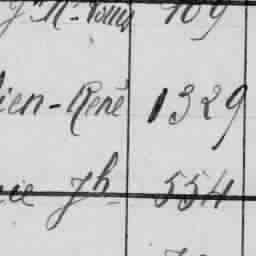 109
ien-René 1329
ie Jh 554